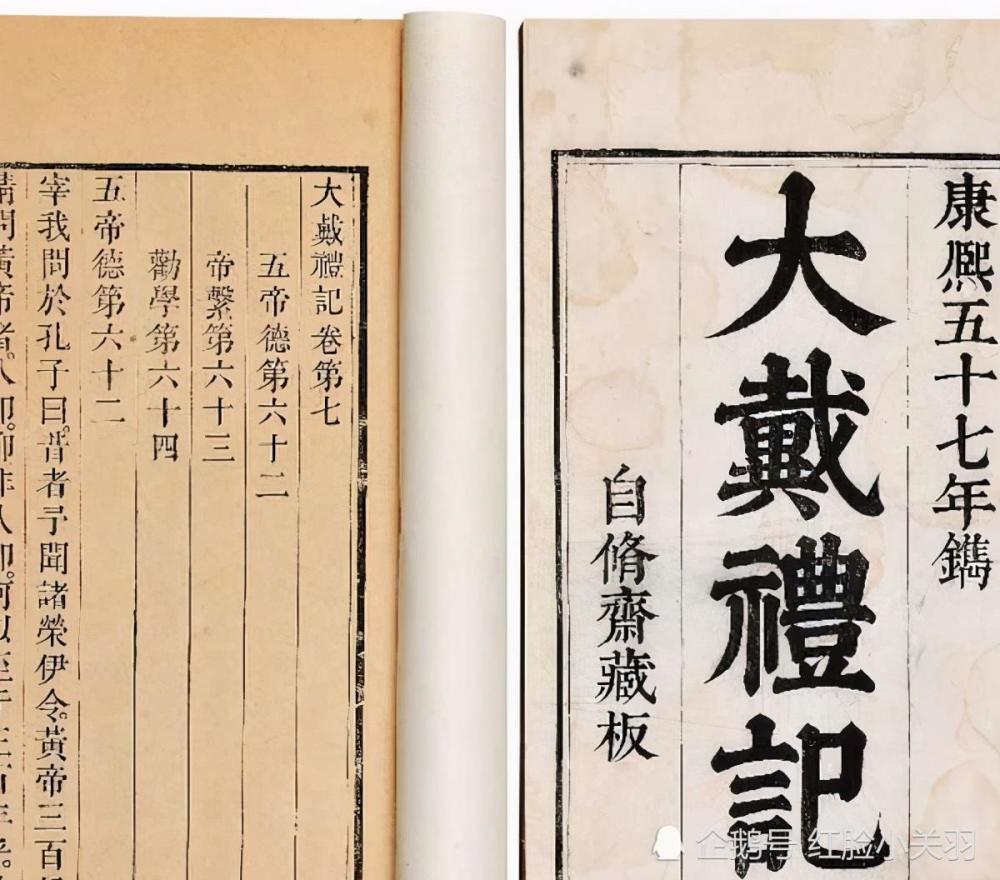 康熈五十七年鐫
大戴禮記
自脩齋藏板
大戴禮記卷第七
五帝德第六十二
帝繫第六十三
勸學第六十四
五帝德第六十二
宰我問於孔子曰。昔者予聞諸榮伊令。黃帝三百
請問黃帝者。人
企鹅号 红脸小关羽